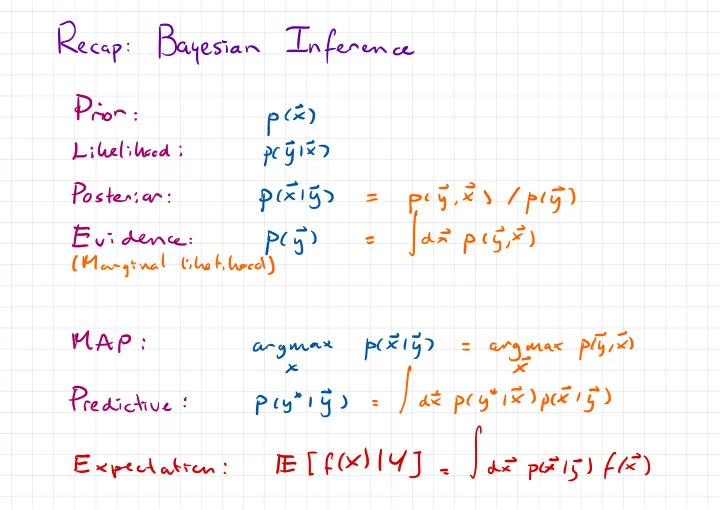 Recap: Bayesian Inference
Prior: p(x⃗)
Likelihood: p(y⃗|x⃗)
Posterior: p(x⃗|y⃗) = p(y⃗,x⃗) / p(y⃗)
Evidence: p(y⃗) = ∫dx⃗ p(y⃗,x⃗)
(Marginal likelihood)
MAP: argmax p(x⃗|y⃗) = argmax p(y⃗,x⃗)
x x⃗
Predictive: p(y*|y⃗) = ∫dx⃗ p(y*|x⃗)p(x⃗|y⃗)
Expectation: 𝔼[f(x)|Y] = ∫dx⃗ p(x⃗|y⃗) f(x⃗)